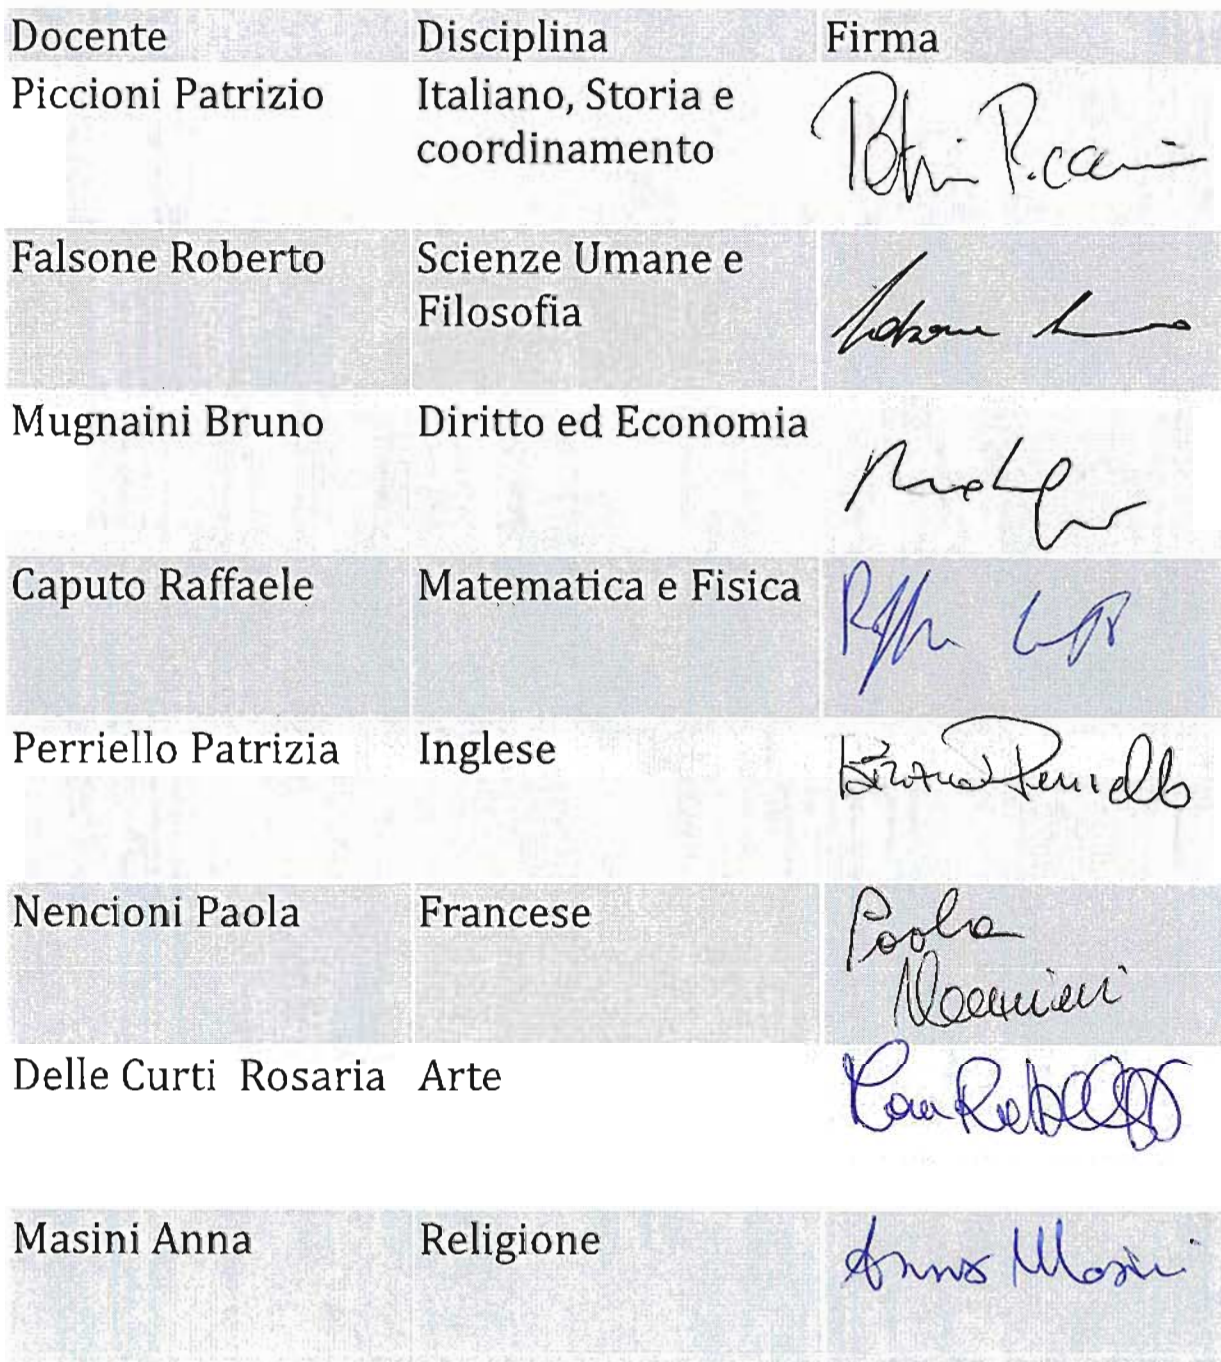 Docente Disciplina Firma
Piccioni Patrizio Italiano, Storia e
coordinamento
Falsone Roberto Scienze Umane e
Filosofia
Mugnaini Bruno Diritto ed Economia
Caputo Raffaele Matematica e Fisica
Perriello Patrizia Inglese Perriello
Nencioni Paola Francese Paola
Nencioni
Delle Curti Rosaria Arte
Masini Anna Religione Anna Masini